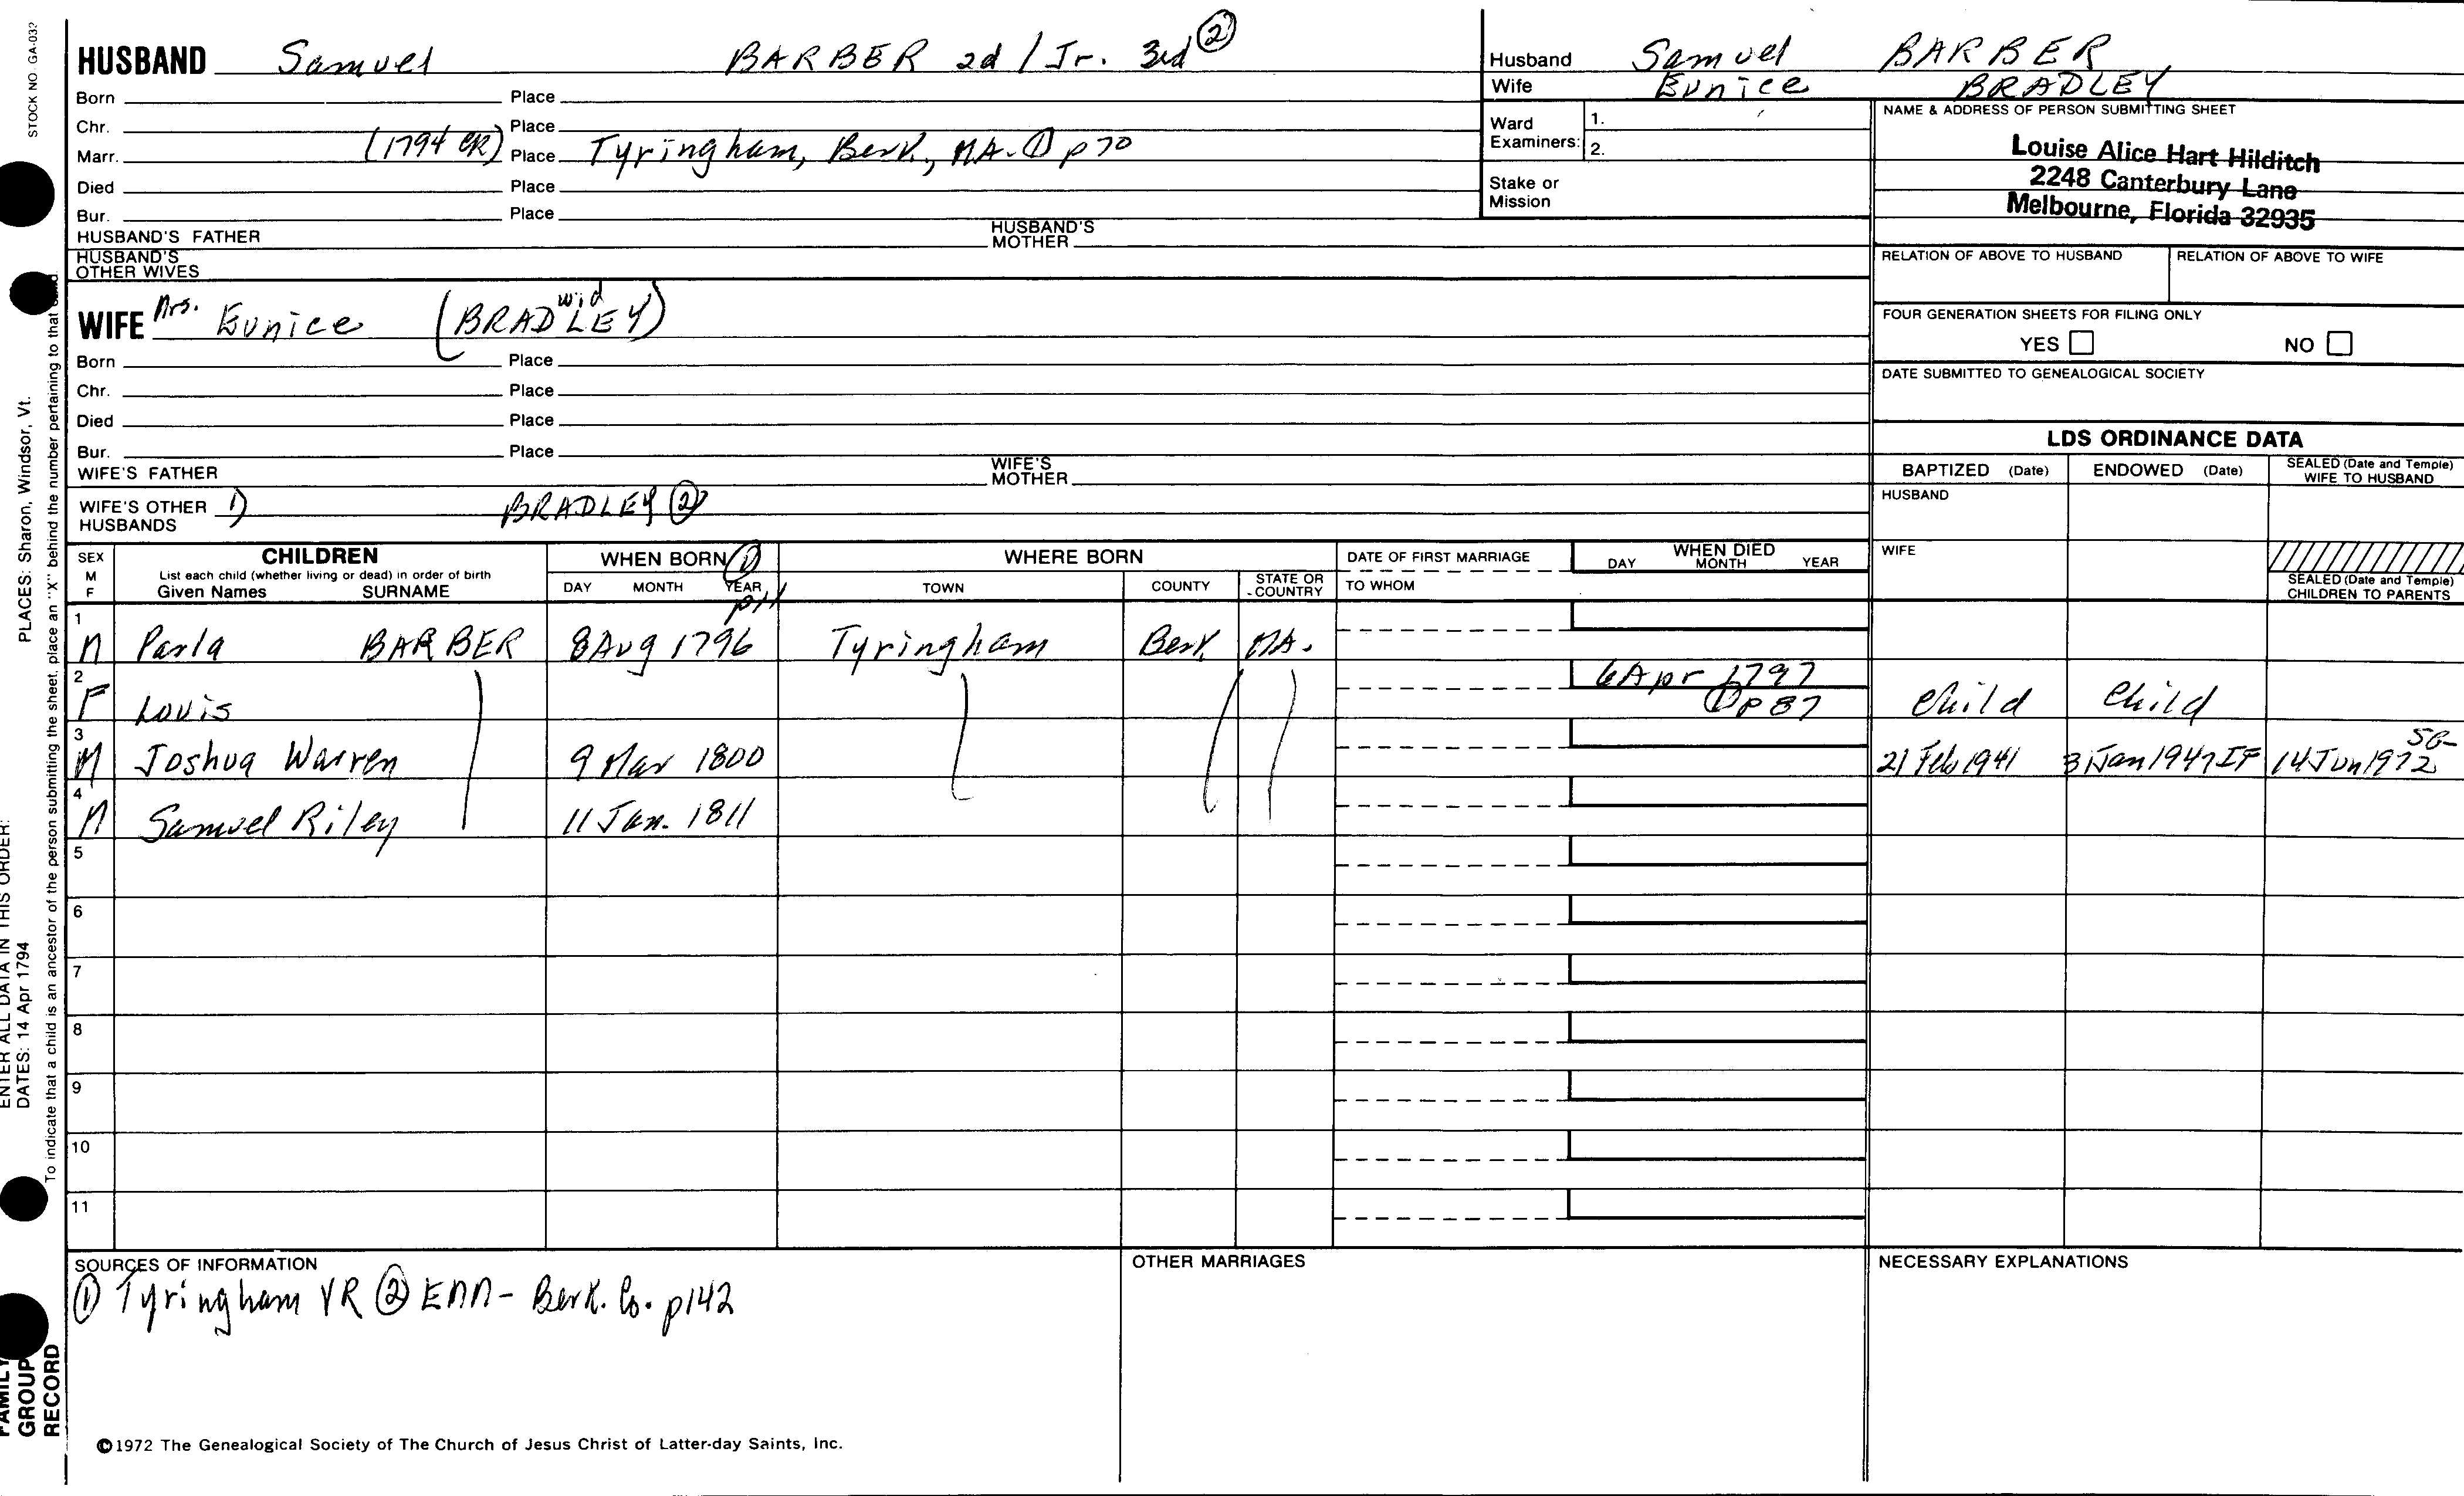 STOCK NO. GA-033
HUSBAND Samuel BARBER 2d / Jr. 3rd ②
Born Place
Chr. Place
Marr. (1794 CR) Place Tyringham, Berk., MA. ① p70
Died Place
Bur. Place
HUSBAND'S FATHER HUSBAND'S MOTHER
HUSBAND'S OTHER WIVES
Husband Samuel BARBER
Wife Eunice BRADLEY
Ward Examiners: 1.
2.
Stake or Mission
NAME & ADDRESS OF PERSON SUBMITTING SHEET
Louise Alice Hart Hilditch
2248 Canterbury Lane
Melbourne, Florida 32935
RELATION OF ABOVE TO HUSBAND RELATION OF ABOVE TO WIFE
FOUR GENERATION SHEETS FOR FILING ONLY
YES NO
DATE SUBMITTED TO GENEALOGICAL SOCIETY
WIFE Mrs. Eunice (BRADLEY) wid
Born Place
Chr. Place
Died Place
Bur. Place
WIFE'S FATHER WIFE'S MOTHER
WIFE'S OTHER HUSBANDS 1) BRADLEY ②
LDS ORDINANCE DATA
BAPTIZED (Date) ENDOWED (Date) SEALED (Date and Temple) WIFE TO HUSBAND
HUSBAND
WIFE
SEALED (Date and Temple) CHILDREN TO PARENTS
SEX M F
CHILDREN
List each child (whether living or dead) in order of birth
Given Names SURNAME
WHEN BORN ①
DAY MONTH YEAR p11
WHERE BORN
TOWN COUNTY STATE OR COUNTRY
DATE OF FIRST MARRIAGE
TO WHOM
WHEN DIED
DAY MONTH YEAR
1 M Parla BARBER 8 Aug 1796 Tyringham Berk MA.
2 F Lovis 6 Apr 1797 ① p87 Child Child
3 M Joshua Warren 9 Mar 1800 21 Feb 1941 3 Jan 1947 IF 14 Jun 1972 SG
4 M Samuel Riley 11 Jan. 1811
5
6
7
8
9
10
11
SOURCES OF INFORMATION
① Tyringham VR ② EMM - Berk. Co. p142
OTHER MARRIAGES
NECESSARY EXPLANATIONS
©1972 The Genealogical Society of The Church of Jesus Christ of Latter-day Saints, Inc.
PLACES: Sharon, Windsor, Vt.
To indicate that a child is an ancestor of the person submitting the sheet, place an "X" behind the number pertaining to that
ENTER ALL DATA IN THIS ORDER:
DATES: 14 Apr 1794
FAMILY GROUP RECORD